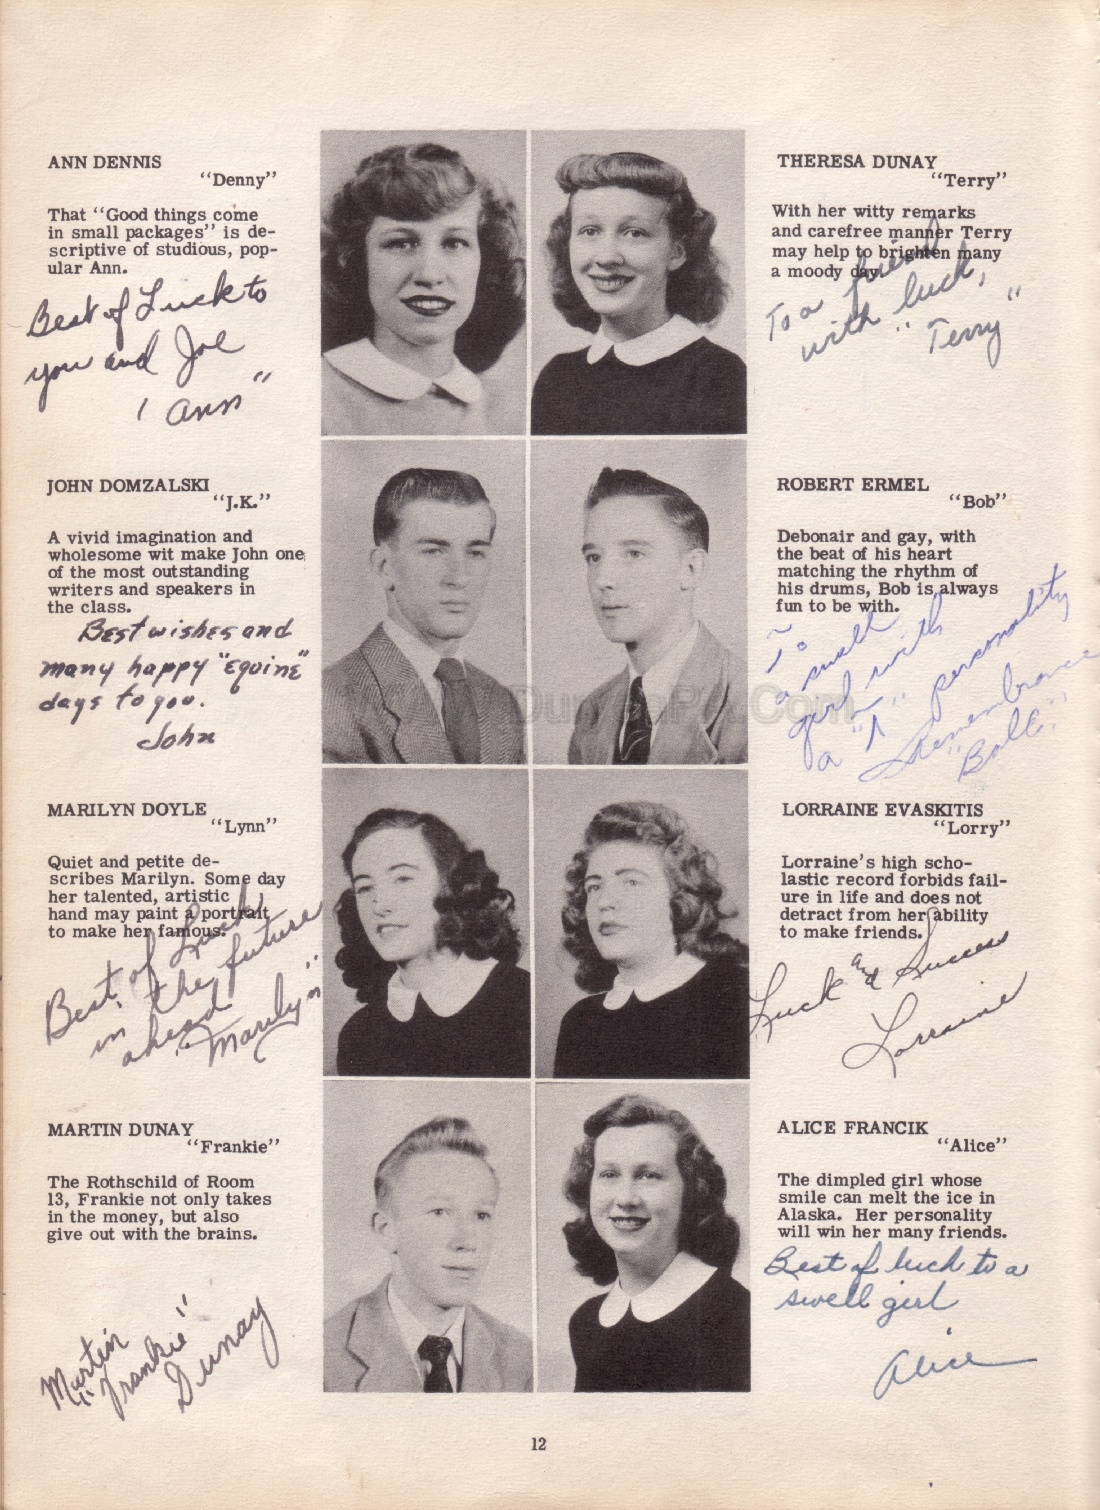 ANN DENNIS
"Denny"
That "Good things come
in small packages" is de-
scriptive of studious, pop-
ular Ann.
Best of Luck to
you and Joe
"Ann"
JOHN DOMZALSKI
"J.K."
A vivid imagination and
wholesome wit make John one
of the most outstanding
writers and speakers in
the class.
Best wishes and
many happy "equine"
days to you.
John
MARILYN DOYLE
"Lynn"
Quiet and petite de-
scribes Marilyn. Some day
her talented, artistic
hand may paint a portrait
to make her famous.
Best of Luck
in the future
ahead
"Marilyn"
MARTIN DUNAY
"Frankie"
The Rothschild of Room
13, Frankie not only takes
in the money, but also
give out with the brains.
Martin
"Frankie"
Dunay
THERESA DUNAY
"Terry"
With her witty remarks
and carefree manner Terry
may help to brighten many
a moody day.
To a friend
with luck,
"Terry"
ROBERT ERMEL
"Bob"
Debonair and gay, with
the beat of his heart
matching the rhythm of
his drums, Bob is always
fun to be with.
To
a small
girl with
a personality
Remembrance
LORRAINE EVASKITIS
"Lorry"
Lorraine's high scho-
lastic record forbids fail-
ure in life and does not
detract from her ability
to make friends.
Luck and Success
Lorraine
ALICE FRANCIK
"Alice"
The dimpled girl whose
smile can melt the ice in
Alaska. Her personality
will win her many friends.
Best of luck to a
swell girl
Alice
12